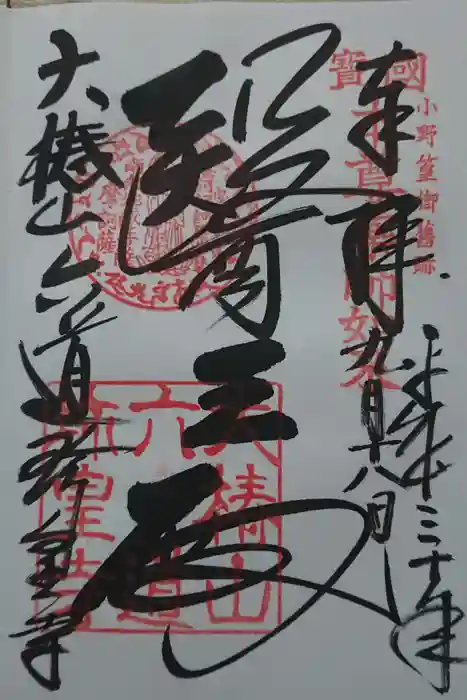 小野篁御舊跡
國寶
奉拝
平成三十年
九月十八日
醫王殿
大椿山六道珍皇寺
大椿山
六道
珍皇寺